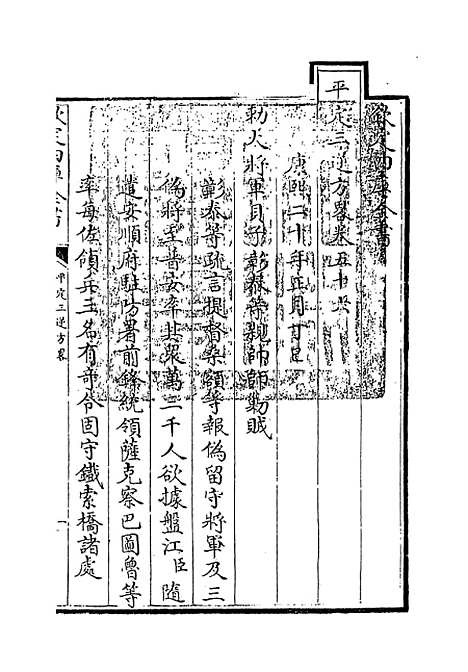 欽定四庫全書
平定三逆方畧卷五十
康熙二十年正月
勅大將軍貝子彰泰等親帥師勦賊
彰泰等疏言提督桑額等報偽留守將軍及三
偽將王普安率其衆萬二千人欲據盤江臣隨
遣安順府駐防署前鋒統領薩克察巴圖魯等
率每佐領兵三名有奇令固守鐵索橋諸處
欽定四庫全書
平定三逆方畧
一